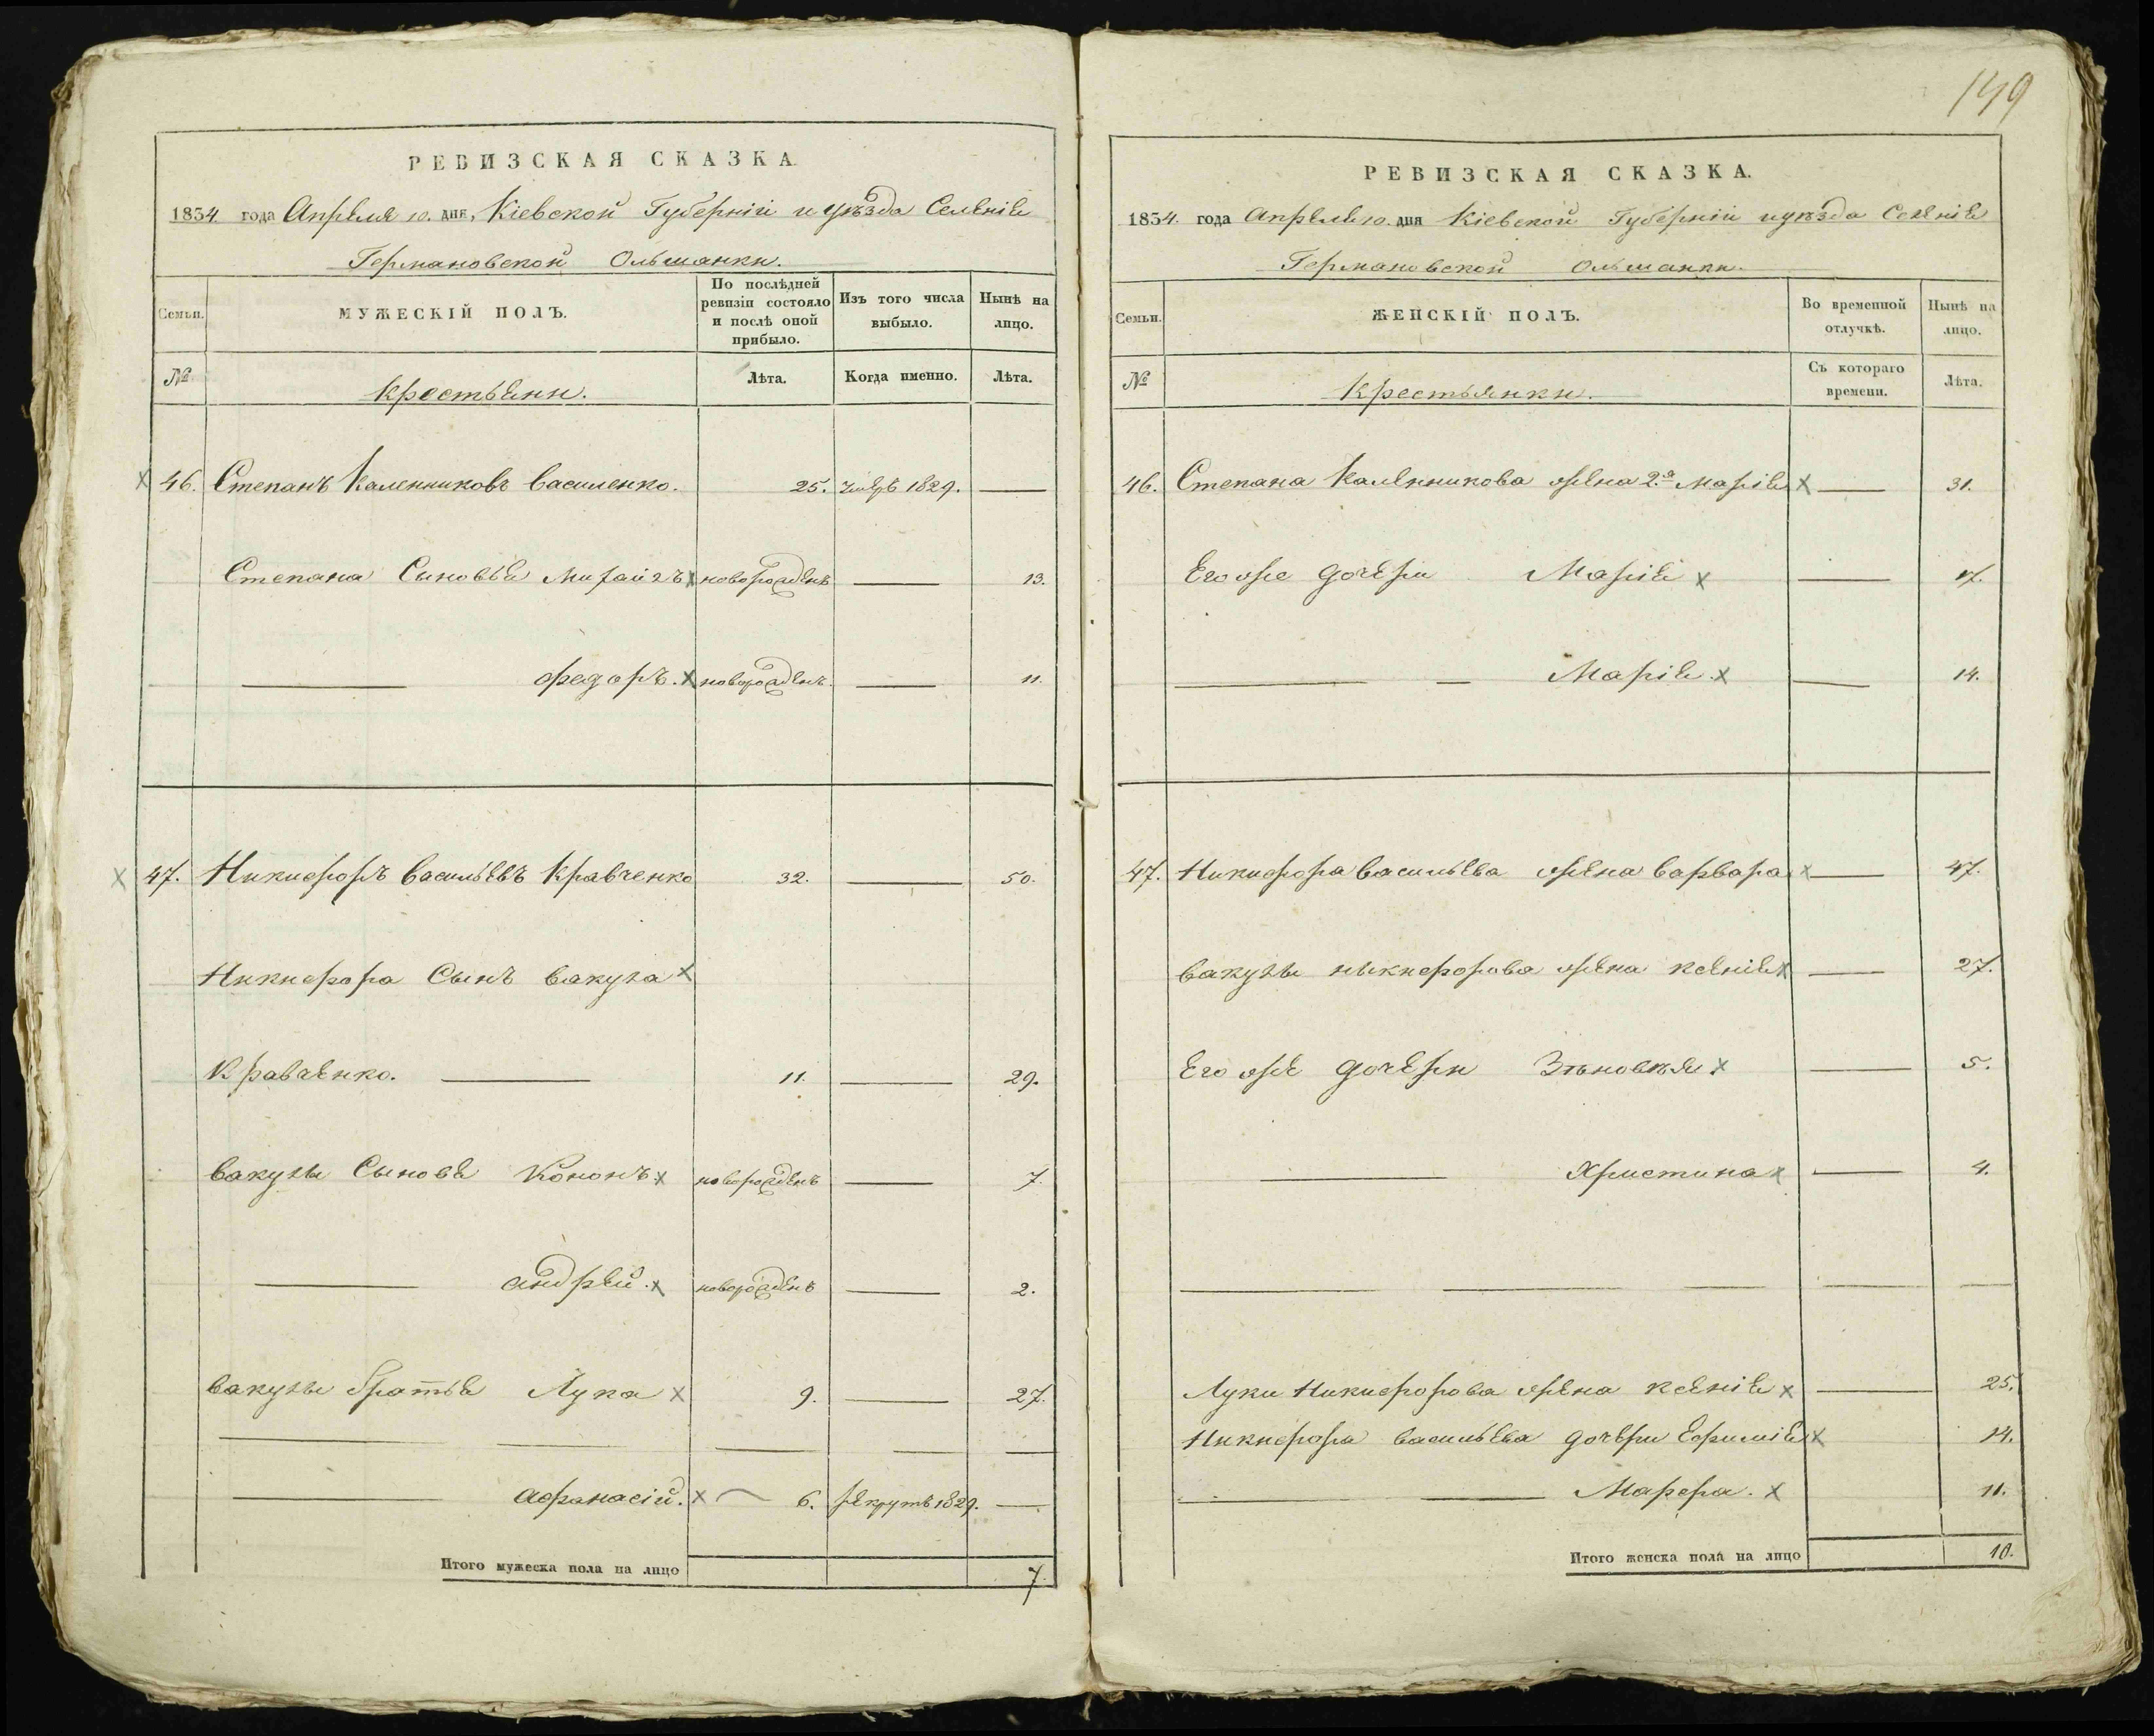 149
РЕВИЗСКАЯ СКАЗКА
1834 года Апреля 10. дня, Кіевской Губерніи и уѣзда Селенія
Германовской Ольшанки.
Семьи.
МУЖЕСКІЙ ПОЛЪ.
По послѣдней ревизіи состояло и послѣ оной прибыло.
Изъ того числа выбыло.
Нынѣ на лицо.
№
Крестьяни.
Лѣта.
Когда именно.
Лѣта.
46. Степанъ Каленниковъ Василенко. 25. 1829.
Степана Сыновья Михайлъ x новорожденъ 13.
Федоръ. x новорожденъ. 11.
x 47. Никифоръ Васильевъ Кравченко 32. 50.
Никифора Сынъ Вакула x
Кравченко. 11. 29.
Вакулы Сыновя Кононъ x новорожденъ 7.
Андрей. x новорожденъ 2.
Вакулы братья Лука x 9. 27.
Афанасій. x 6. рекрутъ 1829.
Итого мужеска пола на лицо 7.
РЕВИЗСКАЯ СКАЗКА.
1834. года Апреля 10. дня Кіевской Губерніи и уѣзда Селенія
Германовской Ольшанки.
Семьи.
ЖЕНСКІЙ ПОЛЪ.
Во временной отлучкѣ.
Нынѣ на лицо.
№
Крестьянки.
Съ котораго времени.
Лѣта.
46. Степана Каленникова жена 2я Марія x 31.
Его же дочери Марія x 17.
Марія. x 14.
47. Никифора Васильева жена Варвара x 47.
Вакулы никифорова жена Ксенія x 27.
Его же дочери Зѣновѣя x 5.
Христина x 4.
Луки Никифорова жена Ксенія x 25.
Никифора Васильева дочери Ефимія x 14.
Марфа. x 11.
Итого женска пола на лицо 10.